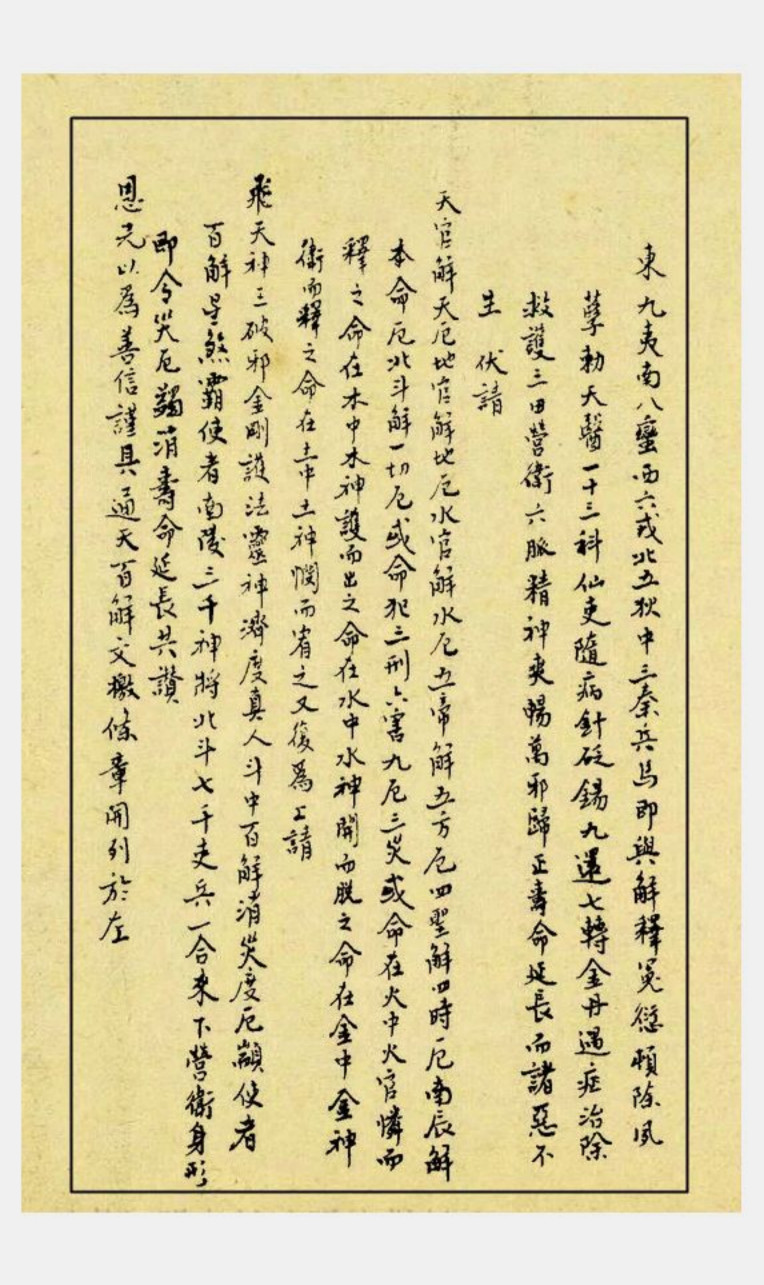 東九夷南八蠻西六戎北五狄中三秦兵馬即與解釋冤愆頓除夙
孽勅天醫一十三科仙吏隨病針砭錫九還七轉金丹遇症治除
救護三田營衛六脈精神爽暢萬邪歸正壽命延長而諸惡不
生 伏請
天官解天厄地官解地厄水官解水厄五帝解五方厄四聖解四時厄南辰解
本命厄北斗解一切厄或命犯三刑六害九厄三災或命在火中火官憐而
釋之命在木中木神護而出之命在水中水神開而脫之命在金中金神
衛而釋之命在土中土神憫而宥之又復爲上請
飛天神王破邪金剛護法靈神濟度真人斗中百解消災度厄顯使者
百解星煞霸使者南陵三千神將北斗七千吏兵一合來下營衛身形
即令災厄蠲消壽命延長共讚
恩光以爲善信謹具通天百解文檄條章開列於左